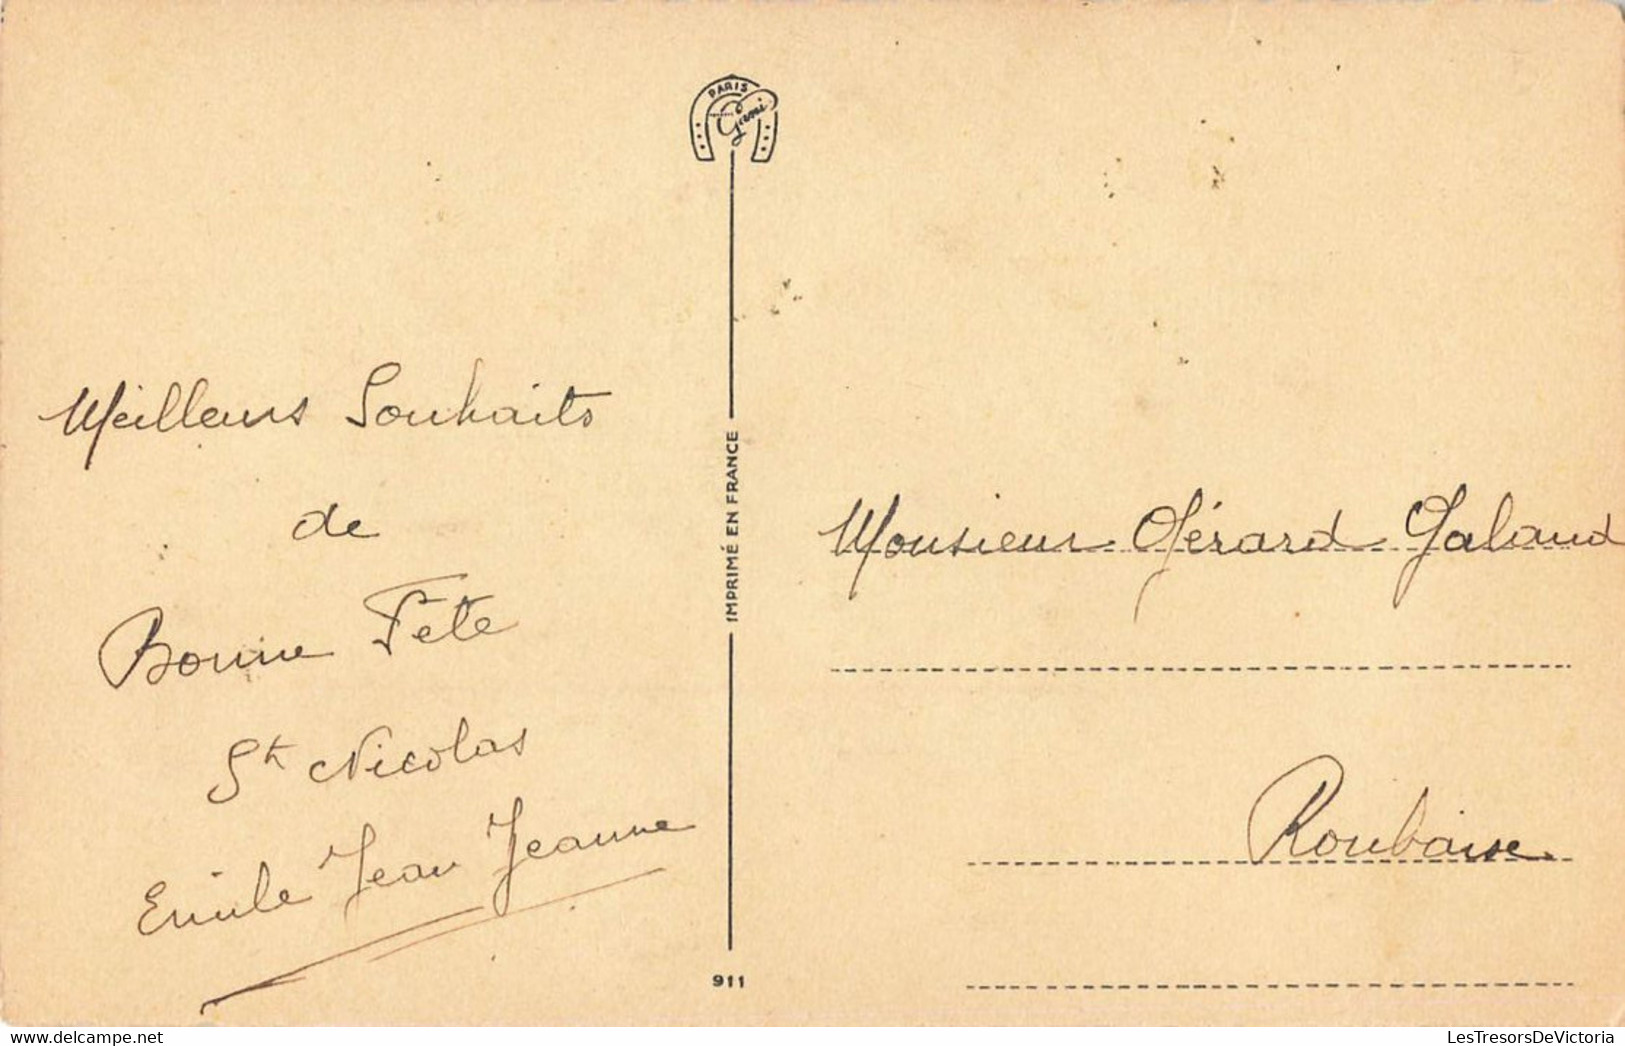 Meilleurs Souhaits
de
Bonne Fete
St Nicolas
Emile Jean Jeanne
PARIS
IMPRIMÉ EN FRANCE
911
Monsieur Gérard Galand
Delcampe.net
LesTresorsDeVictoria